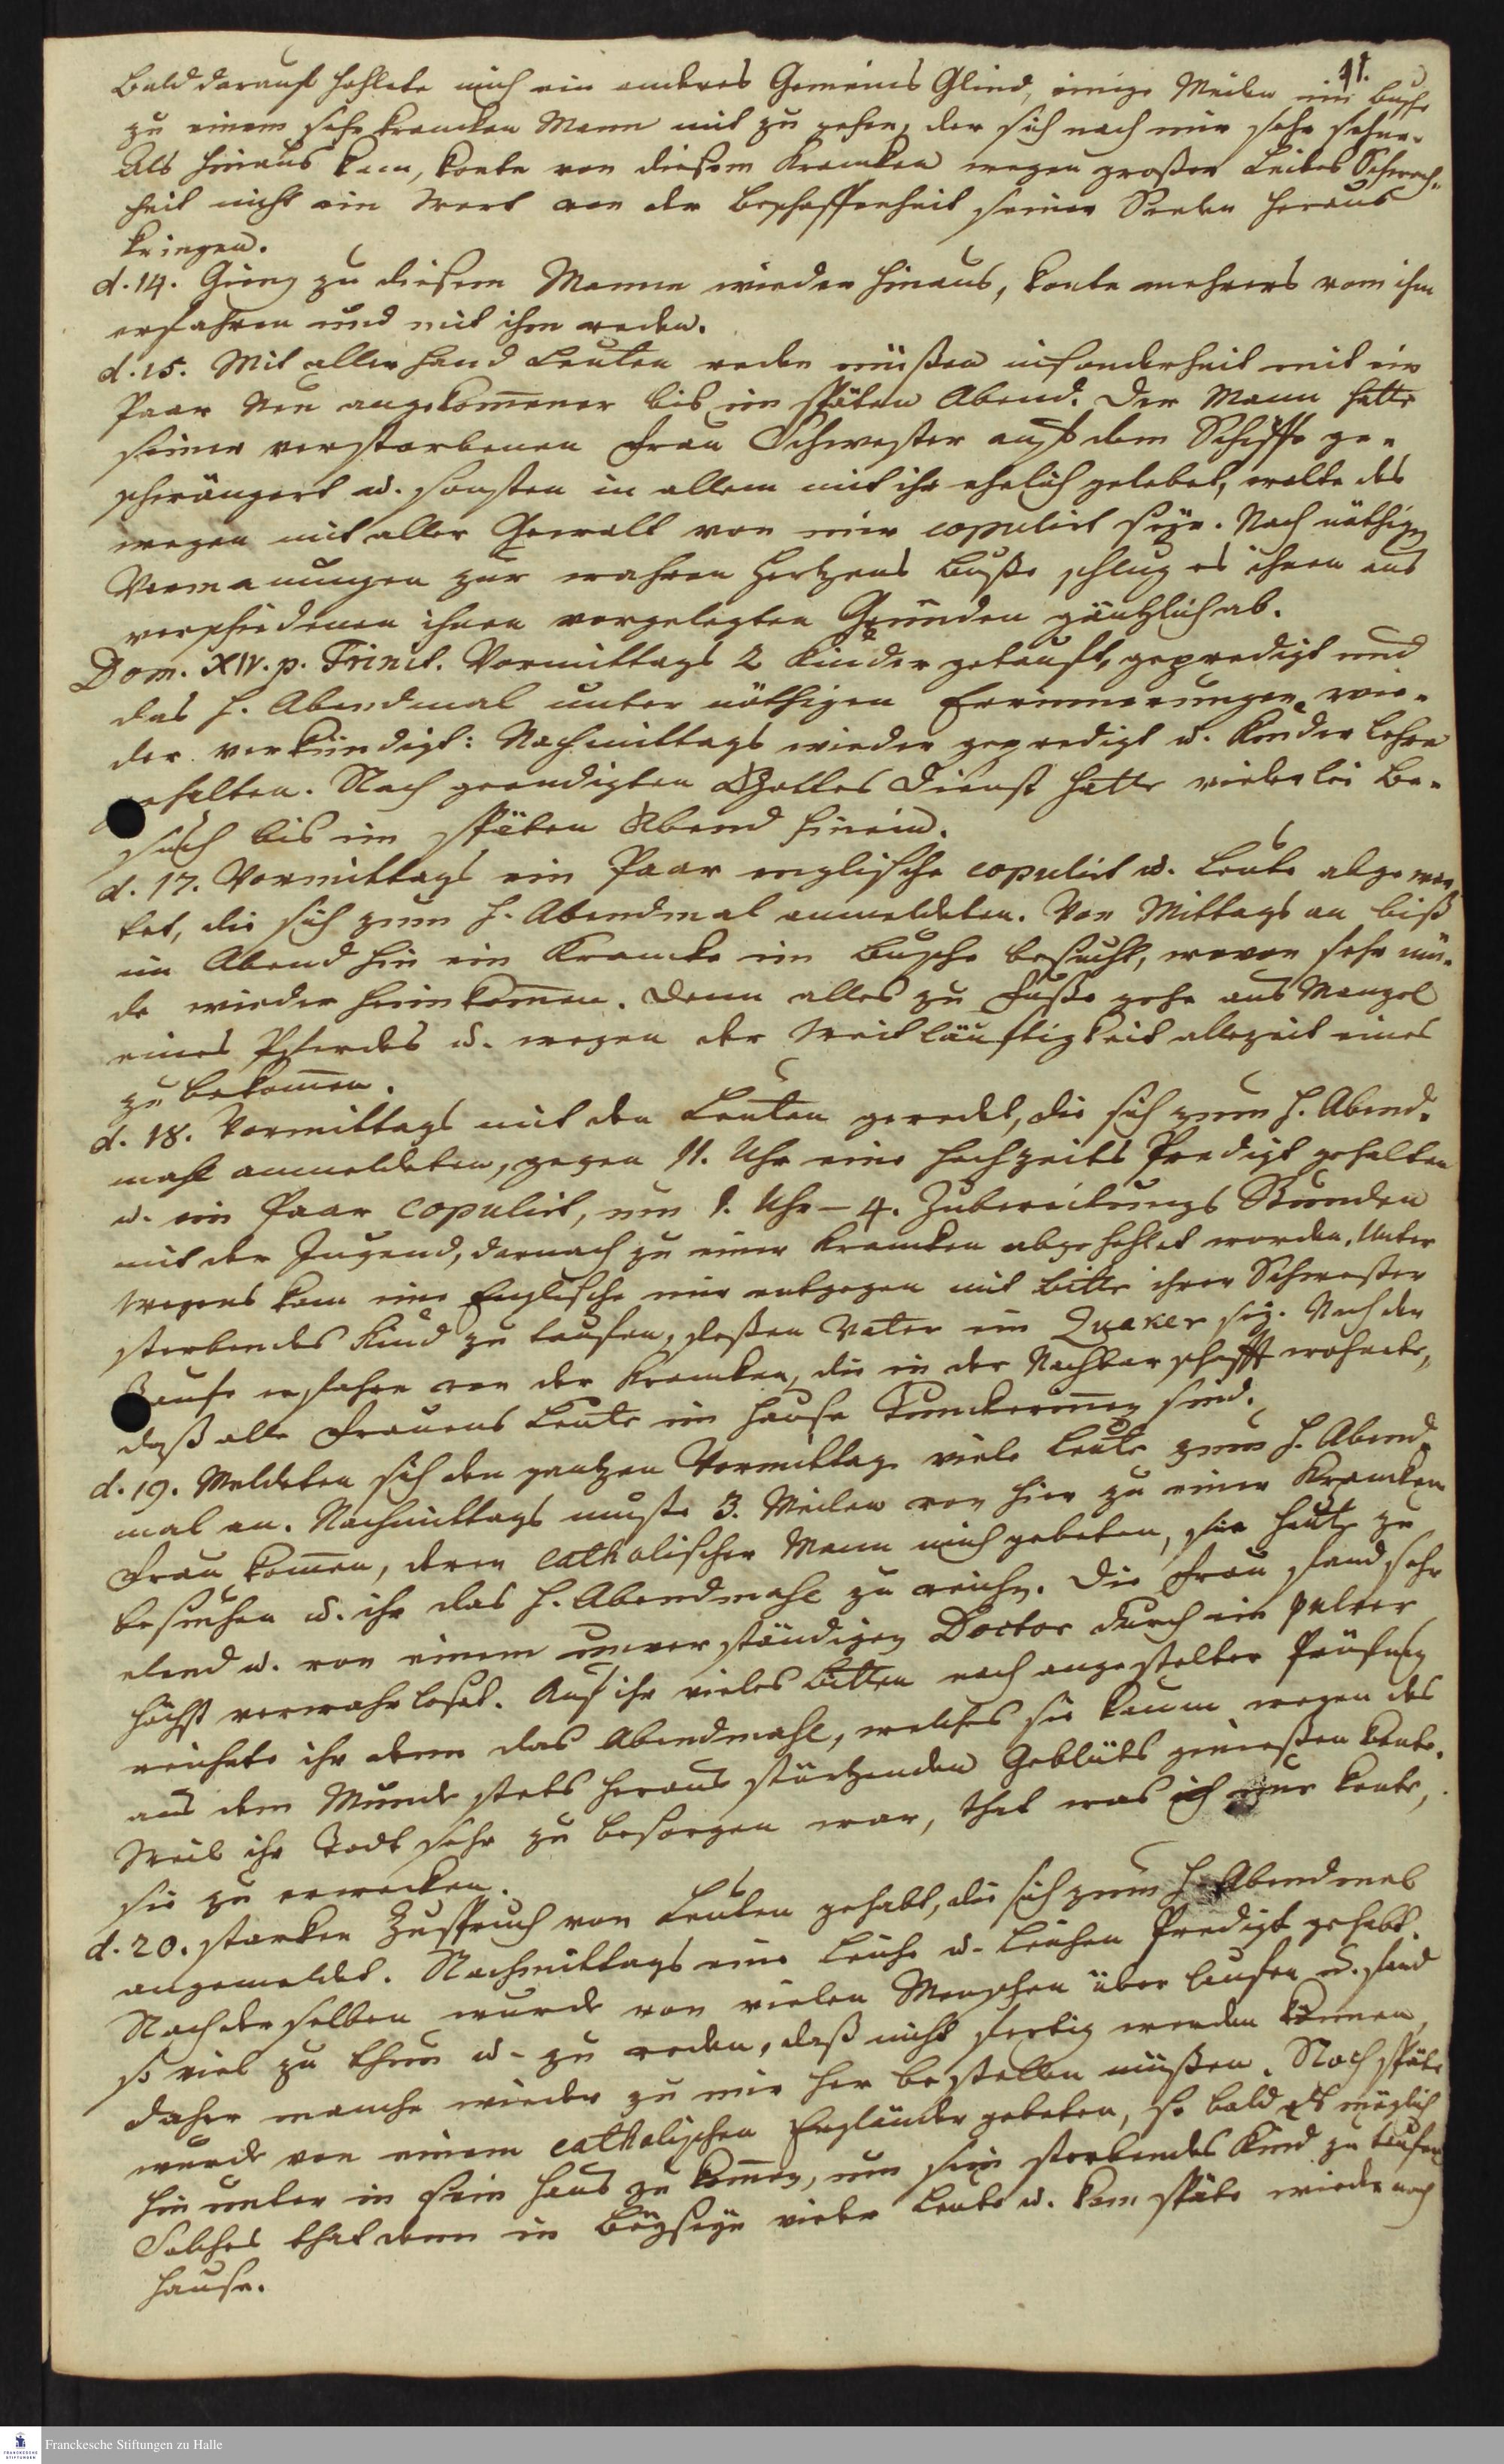 11.
Bald darauf hohlete mich ein anderes Gemeins Glied, einige Meilen im Busch
zu einem sehr krancken Mann mit zu gehen, der sich nach mir sehr sehne.
Als hinaus kam, konte von diesem Krancken wegen großer Leibes Schwach-
heit nicht ein Wort von der Beschaffenheit seiner Seelen heraus
bringen.
d. 14. Gieng zu diesem Manne wieder hinaus, konte mehrers vom ihm
erfahren und mit ihm reden.
d. 15. Mit aller hand Leuten reden müßen insonderheit mit ein
Paar Neu angekom̄ener bis im späten Abend. Der Mann hatte
seiner verstorbenen Frau Schwester auf dem Schiffe ge-
schwängert u. sonsten in allem mit ihr ehelich gelebet, wolte des
wegen mit aller Gewalt von mir copulirt seyn. Nach nöthigen
Vermanungen zur wahren Hertzens Buße schlug es ihnen aus
verschiedenen ihnen vorgelegten Gründen gäntzlich ab.
Dom. XIV. p. Trinit. Vormittags 2 Kinder getauft, gepredigt und
das H. Abendmal unter nöthigen Erinnerungen wie-
der verkündigt: Nachmittags wieder gepredigt u. Kinder Lehre
gehalten. Nach geendigten Gottes Dienst hatte vielerlei Be-
such bis im späten Abend hinein.
d. 17. Vormittags ein Paar englische copulirt u. Leute abgewar-
tet, die sich zum H. Abendmal anmeldeten. Von Mittags an biß
im Abend hin ein Krancke im Busche besucht, wovon sehr mü-
de wieder heim kom̄en. Denn alles zu Fuße gehe aus Mangel
eines Pferdes u. wegen der Weitläuftigkeit allezeit eines
zu bekom̄en.
d. 18. Vormittags mit den Leuten geredet, die sich zum H. Abend-
mahl anmeldeten, gegen 11. Uhr eine Hochzeits Predigt gehalten
u. ein Paar copulirt, um 1. Uhr – 4. Zubereitungs Stunden
mit der Jugend, darnach zu einer Krancken abgehohlet worden. Unter
wegens kam eine Englische mir entgegen mit Bitte ihrer Schwester
sterbendes Kind zu taufen, deßen Vater ein Quaker sey. Nach der
Taufe erfahre von der Krancken, die in der Nachbarschafft wohnete,
daß alle Frauens Leute im Hause Tunckerin̄en sind.
d. 19. Meldeten sich den gantzen Vormittag viele Leute zum H. Abend-
mal an. Nachmittags muste 3. Meilen von hier zu einer Krancken
Frau kom̄en, deren catholischer Mann mich gebeten, sie heute zu
besuchen u. ihr das H. Abendmahl zu reichen. Die Frau fand sehr
elend u. von einem unverständigen Doctor durch ein pulver
höchst verwahrloset. Auf ihr vieles Bitten nach angestelter Prüfung
reichete ihr denn das Abendmahl, welches sie kaum wegen des
aus dem Munde stets heraus stürtzenden Geblüts genießen konte.
Weil ihr Todt sehr zu besorgen war, that was ich nur konte,
sie zu erwecken.
d. 20. starken Zuspruch von Leuten gehabt, die sich zum H. Abendmal
angemeldet. Nachmittags eine Leiche u. Leichen Predigt gehabt.
Nach derselben wurde von vielen Menschen über laufen u. fand
so viel zu thun u. zu reden, daß nicht fertig werden können,
daher manche wieder zu mir her bestellen müßen. Noch späte
wurde von einem catholischen Engländer gebeten, so bald es möglich
hinunter in sein Haus zu kom̄en, um sein sterbendes Kind zu taufen
Solches that denn in Beyseyn vieler Leute u. kam späte wieder nach
Hause.
Franckesche Stiftungen zu Halle